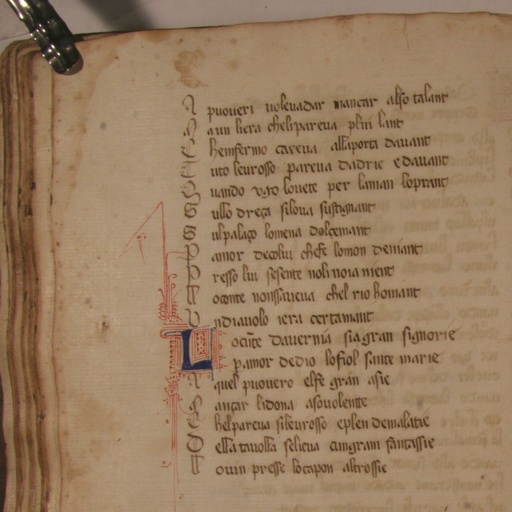 A puoveri volevadar mançar asso talant
A un liera chelipareva plui lant
C heinfermo caçeva allaporta davant
T uto levrosso pareva dadrie edavant
Q uando ugo lovete per laman loprant
S ullo dreça silova sustignant
S ulpalaço lomena dolçemant
P amor decolui chefe lomon demant
P resso lui sesente noli noia nient
T oconte nonssaveva chel rio homant
U ndiavolo iera certamant
L oconte davernia siagran signorie
P amor dedio lofiol sante marie
A quel puovero esse gran asie
M ançar lidona asovolente
C helpareva silevrosso eplen demalatie
S ella tavolla seleva cungram fantassie
T ovin presse locapon altrossie